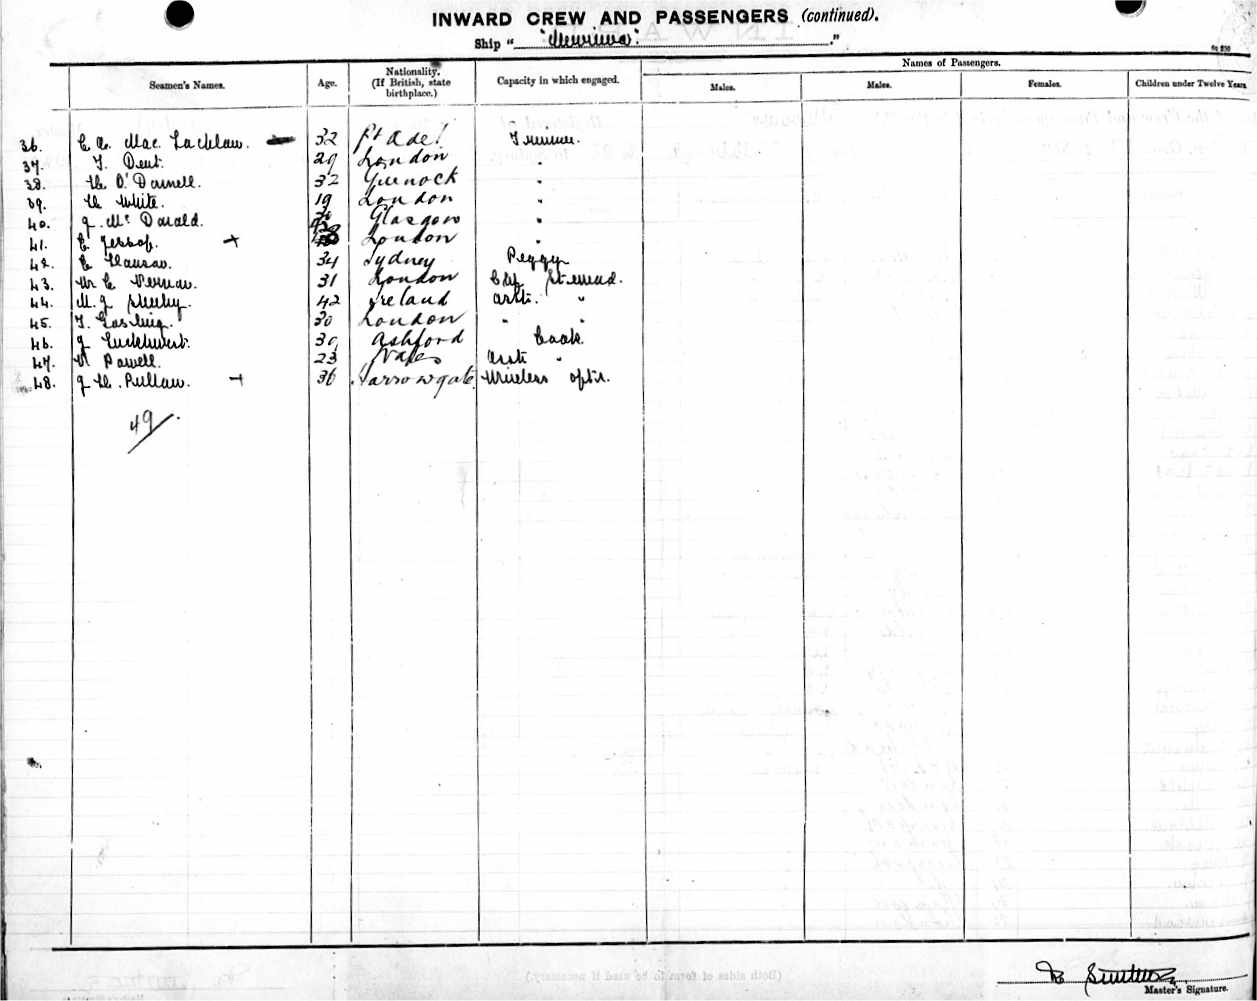 INWARD CREW AND PASSENGERS (continued).
Ship " "
Seamen's Names. Age. Nationality. (If British, state birthplace.) Capacity in which engaged. Names of Passengers.
Males. Males. Females. Children under Twelve Years
36. C A. Mac Lachlan. 32 Pt Adel Trimmer.
37. T. Dent. 29 London "
38. H. O'Donnell. 32 Greenock "
39. H. White. 19 London "
40. J. Mc Donald. Glasgow "
41. C Jessop. + London "
42. C Hansen. 34 Sydney Peggy
43. W C 31 London Chf Steward.
44. M. J Sheehy. 42 Ireland Asst. "
45. T. Gosling. 30 London " "
46. J 30 Ashford Cook.
47. Powell. 23 Wales Asst "
48. J H. Pullan. + 36 Harrowgate Wireless optr.
49
(Both sides of form to be used if necessary.)
Master's Signature.